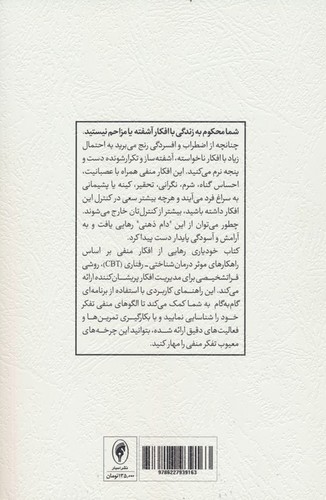 شما محکوم به زندگی با افکار آشفته یا مزاحم نیستید.
چنانچه از اضطراب و افسردگی رنج می‌برید به احتمال
زیاد با افکار ناخواسته، آشفته‌ساز و تکرارشونده دست و
پنجه نرم می‌کنید. این افکار منفی همراه با عصبانیت،
احساس گناه، شرم، نگرانی، تحقیر، کینه یا پشیمانی
به سراغ فرد می‌آیند و هرچه بیشتر سعی در کنترل این
افکار داشته باشید، بیشتر از کنترل‌تان خارج می‌شوند.
چطور می‌توان از این "دام ذهنی" رهایی یافت و به
آرامش و آسودگی پایدار دست پیدا کرد.
کتاب خودیاری رهایی از افکار منفی بر اساس
راهکارهای موثر درمان‌شناختی-رفتاری (CBT)، روشی
فراتشخیصی برای مدیریت افکار پریشان‌کننده ارائه
می‌کند. این راهنمای کاربردی با استفاده از برنامه‌ای
گام‌به‌گام به شما کمک می‌کند تا الگوهای منفی تفکر
خود را شناسایی نمایید و با بکارگیری تمرین‌ها و
فعالیت‌های دقیق ارائه شده، بتوانید این چرخه‌های
معیوب تفکر منفی را مهار کنید.
9786227939163
۱۳۵,۰۰۰ تومان